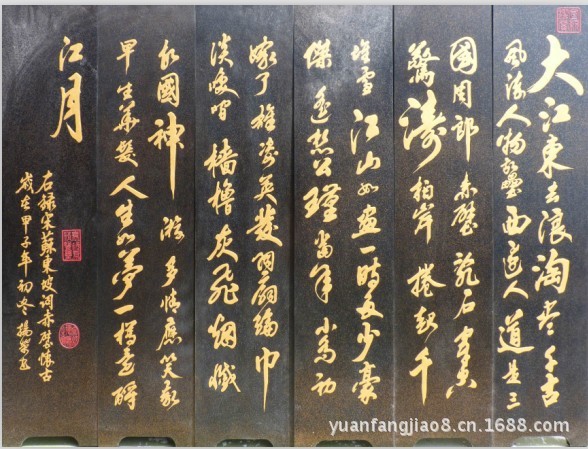 大江東去浪淘盡千古
風流人物故壘西邊人道是三
國周郎赤壁亂石穿空
驚濤拍岸捲起千
堆雪江山如畫一時多少豪
傑遙想公瑾當年小喬初
嫁了雄姿英發羽扇綸巾
談笑間檣櫓灰飛烟滅
故國神遊多情應笑我
早生華髮人生如夢一樽還酹
江月
右錄宋蘇東坡詞赤壁懷古
歲在甲子年初冬楊
yuanfangjiao8.cn.1688.com